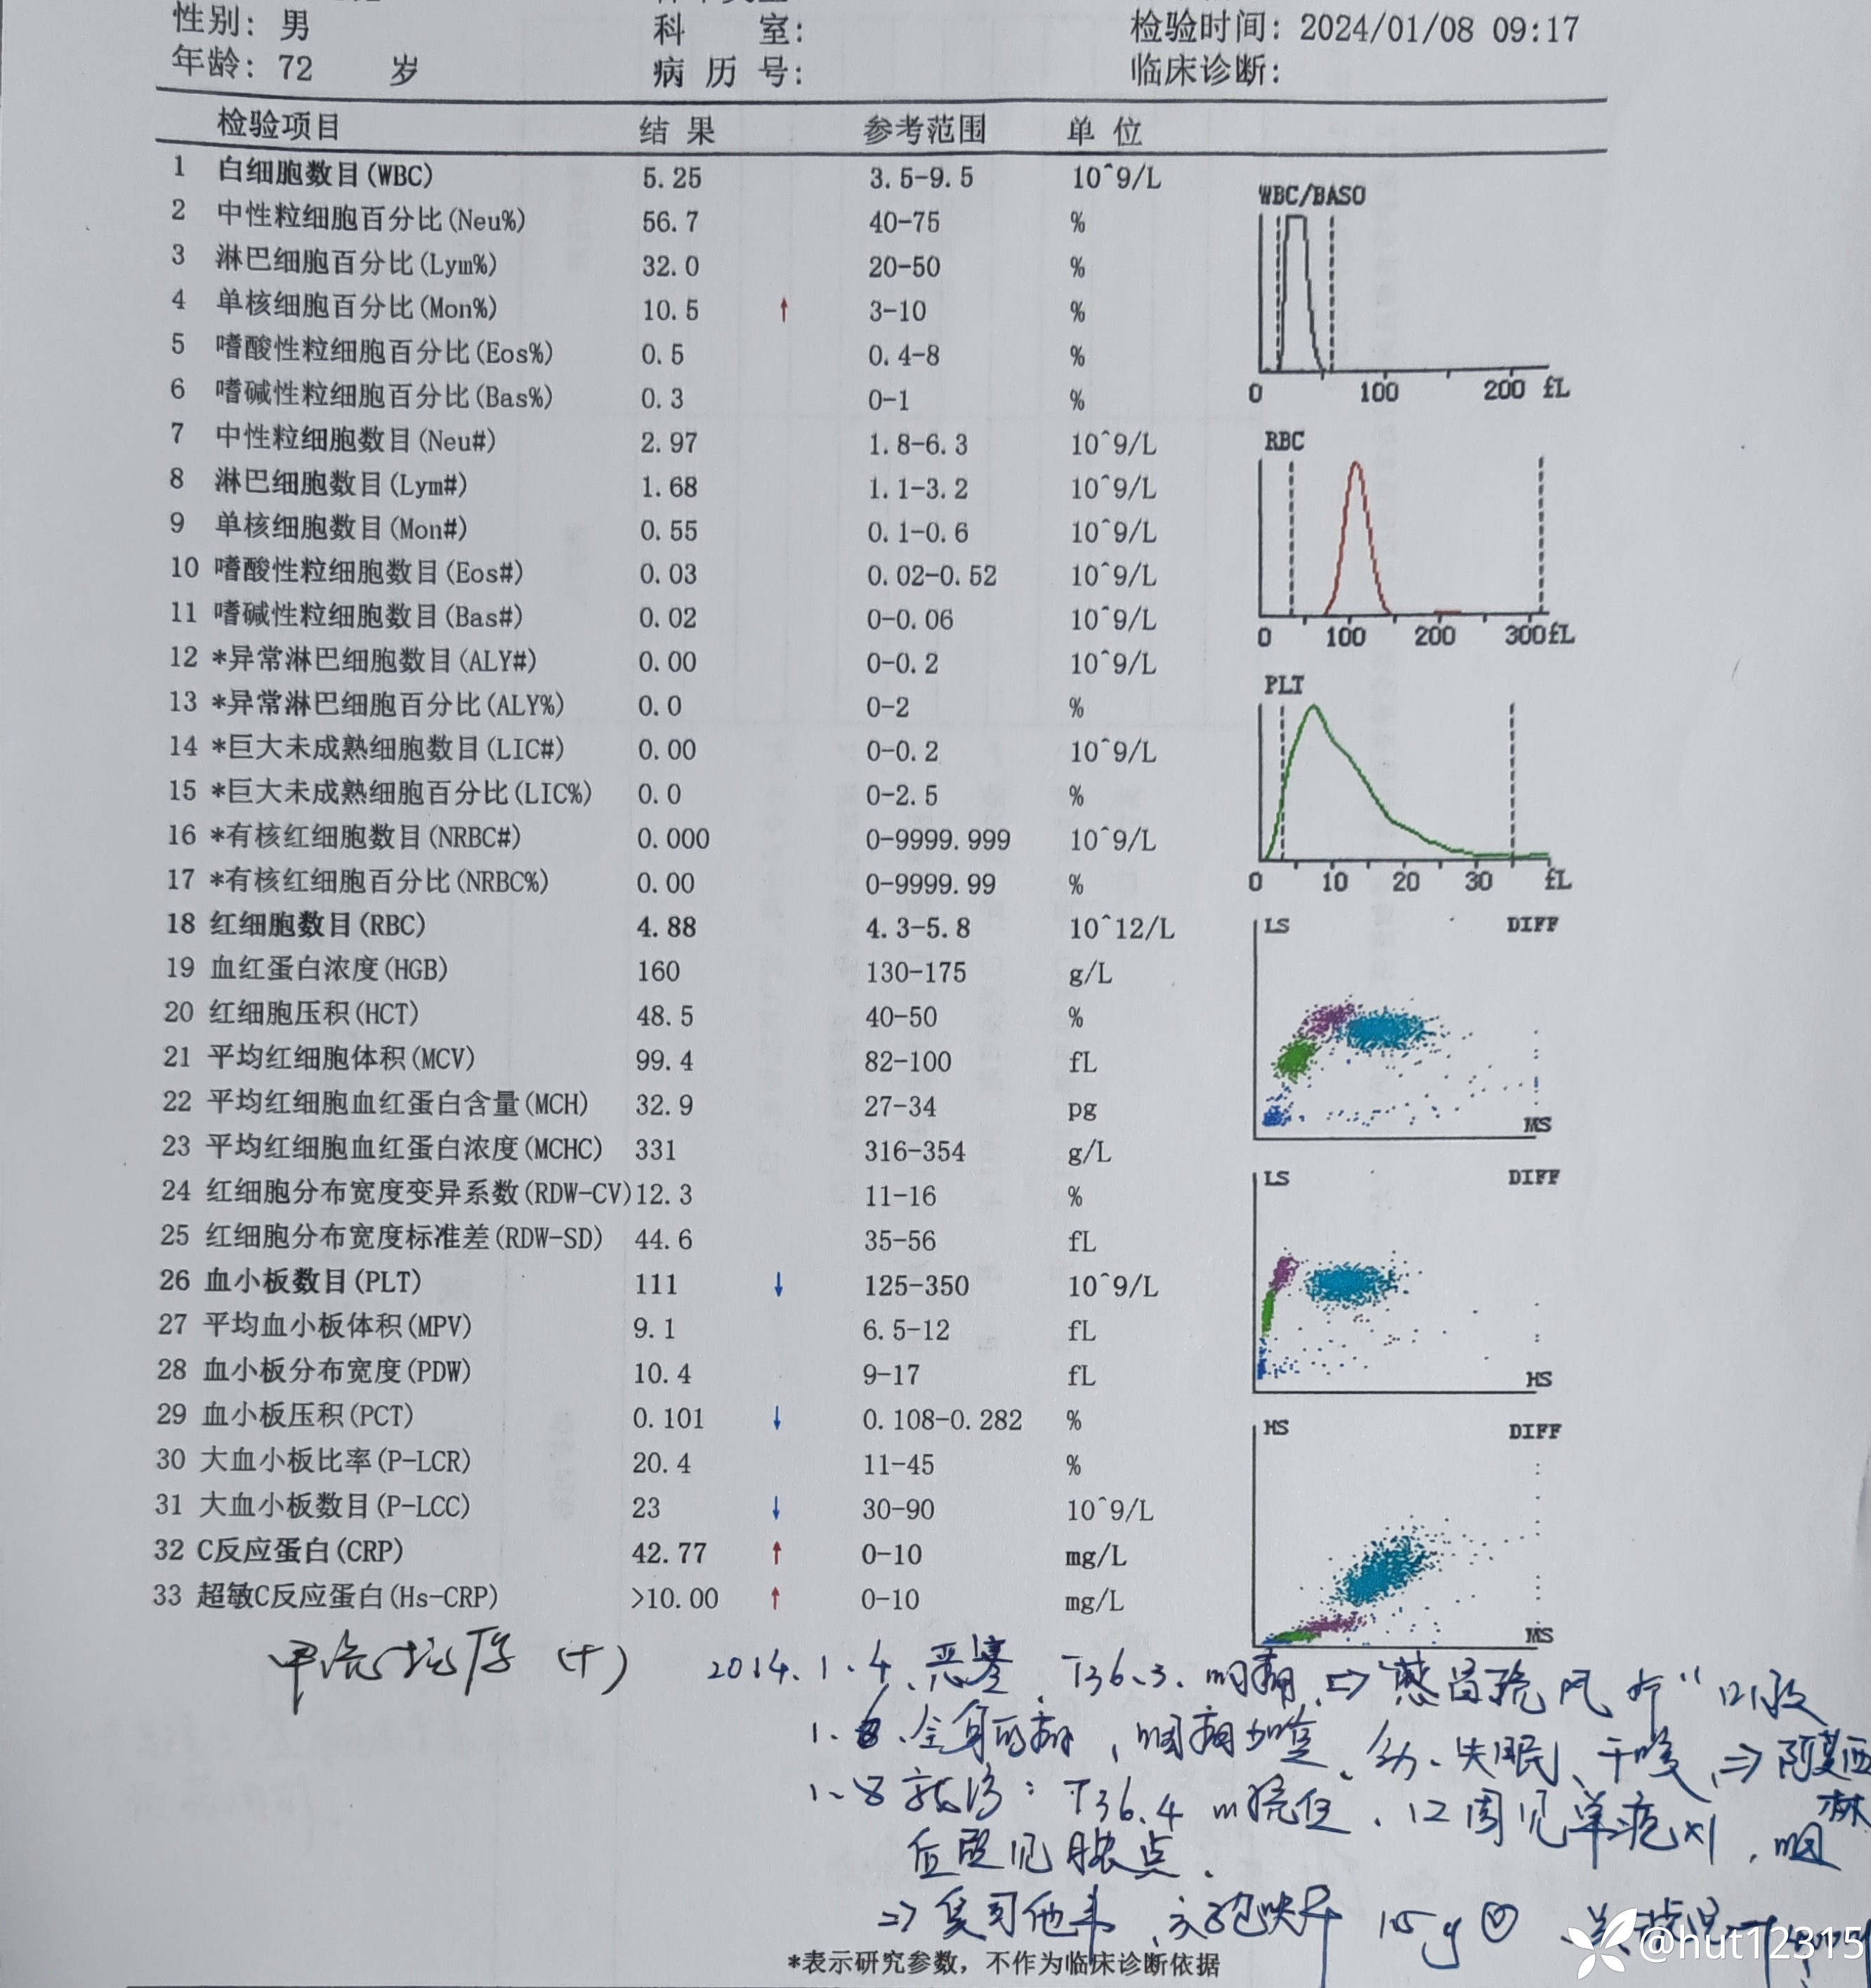 性别: 男 科 室: 检验时间: 2024/01/08 09:17
年龄: 72 岁 病 历 号: 临床诊断:
检验项目 结 果 参考范围 单 位
1 白细胞数目(WBC) 5.25 3.5-9.5 10^9/L
2 中性粒细胞百分比(Neu%) 56.7 40-75 %
3 淋巴细胞百分比(Lym%) 32.0 20-50 %
4 单核细胞百分比(Mon%) 10.5 ↑ 3-10 %
5 嗜酸性粒细胞百分比(Eos%) 0.5 0.4-8 %
6 嗜碱性粒细胞百分比(Bas%) 0.3 0-1 %
7 中性粒细胞数目(Neu#) 2.97 1.8-6.3 10^9/L
8 淋巴细胞数目(Lym#) 1.68 1.1-3.2 10^9/L
9 单核细胞数目(Mon#) 0.55 0.1-0.6 10^9/L
10 嗜酸性粒细胞数目(Eos#) 0.03 0.02-0.52 10^9/L
11 嗜碱性粒细胞数目(Bas#) 0.02 0-0.06 10^9/L
12 *异常淋巴细胞数目(ALY#) 0.00 0-0.2 10^9/L
13 *异常淋巴细胞百分比(ALY%) 0.0 0-2 %
14 *巨大未成熟细胞数目(LIC#) 0.00 0-0.2 10^9/L
15 *巨大未成熟细胞百分比(LIC%) 0.0 0-2.5 %
16 *有核红细胞数目(NRBC#) 0.000 0-9999.999 10^9/L
17 *有核红细胞百分比(NRBC%) 0.00 0-9999.99 %
18 红细胞数目(RBC) 4.88 4.3-5.8 10^12/L
19 血红蛋白浓度(HGB) 160 130-175 g/L
20 红细胞压积(HCT) 48.5 40-50 %
21 平均红细胞体积(MCV) 99.4 82-100 fL
22 平均红细胞血红蛋白含量(MCH) 32.9 27-34 pg
23 平均红细胞血红蛋白浓度(MCHC) 331 316-354 g/L
24 红细胞分布宽度变异系数(RDW-CV) 12.3 11-16 %
25 红细胞分布宽度标准差(RDW-SD) 44.6 35-56 fL
26 血小板数目(PLT) 111 ↓ 125-350 10^9/L
27 平均血小板体积(MPV) 9.1 6.5-12 fL
28 血小板分布宽度(PDW) 10.4 9-17 fL
29 血小板压积(PCT) 0.101 ↓ 0.108-0.282 %
30 大血小板比率(P-LCR) 20.4 11-45 %
31 大血小板数目(P-LCC) 23 ↓ 30-90 10^9/L
32 C反应蛋白(CRP) 42.77 ↑ 0-10 mg/L
33 超敏C反应蛋白(Hs-CRP) >10.00 ↑ 0-10 mg/L
WBC/BASO
0 100 200 fL
RBC
0 100 200 300fL
PLT
0 10 20 30 fL
LS DIFF
MS
LS DIFF
HS
HS DIFF
MS
甲流抗原 (+) 2014.1.4、恶寒、T36.3. 咽痛 ⇒ 口服
1.6、全身酸痛, 咽痛加重、失眠、干咳, ⇒ 阿莫西
林
1.8 就诊: T36.4 口周见单疱, 咽
后壁见脓点.
⇒ 奥司他韦、15g
*表示研究参数, 不作为临床诊断依据
@hut12315